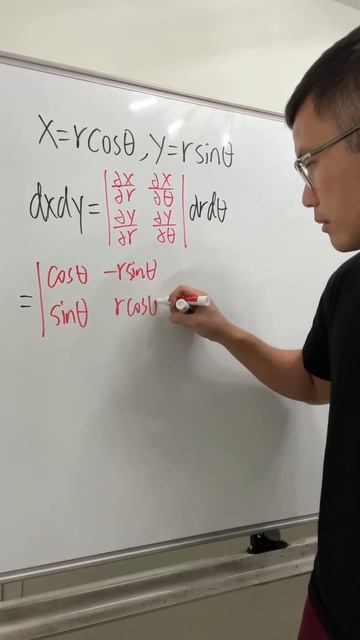 x=rcosθ, y=rsinθ
dxdy= | ∂x/∂r ∂x/∂θ | drdθ
| ∂y/∂r ∂y/∂θ |
= | cosθ -rsinθ
| sinθ rcosθ